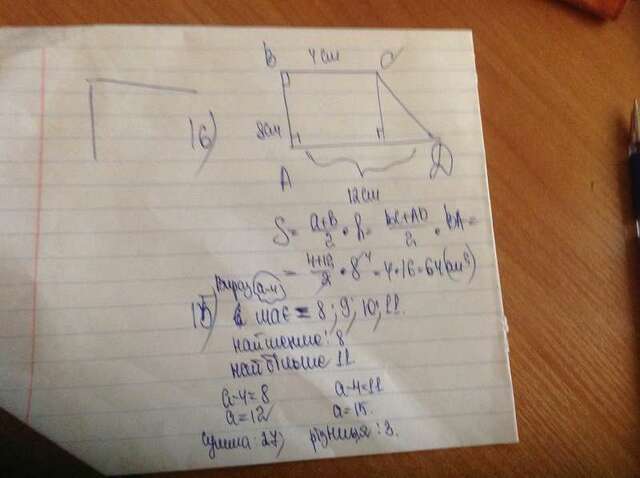 B 4 см C
16)
8см
A D
12 см
S = a+b/2 · h = BC+AD/2 · BA =
= 4+12/2 · 8 = 4 · 16 = 64 (см²)
Вираз (a-4)
15) має = 8; 9; 10; 11.
найменше: 8
найбільше 11
a-4=8 a-4=11
a=12 a=15.
сумма: 27) різниця: 3.